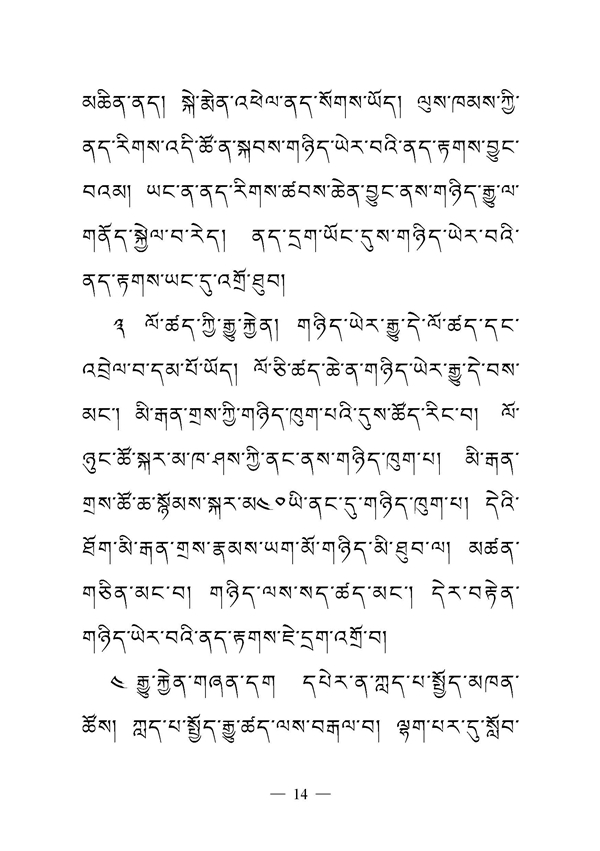 མཆིན་ནད། སྐེ་རྨེན་འཕེལ་ནད་སོགས་ཡོད། ལུས་ཁམས་ཀྱི་
ནད་རིགས་འདི་ཚོ་ན་སྐབས་གཉིད་ཡེར་བའི་ནད་རྟགས་བྱུང་
བའམ། ཡང་ན་ནད་རིགས་ཚབས་ཆེན་བྱུང་ནས་གཉིད་རྒྱུ་ལ་
གནོད་སྐྱེལ་བ་རེད། ནད་དྲག་ཡོང་དུས་གཉིད་ཡེར་བའི་
ནད་རྟགས་ཡང་དུ་འགྲོ་ཐུབ།
༣ ལོ་ཚད་ཀྱི་རྒྱུ་རྐྱེན། གཉིད་ཡེར་རྒྱུ་དེ་ལོ་ཚད་དང་
འབྲེལ་བ་དམ་པོ་ཡོད། ལོ་ཅི་ཚད་ཆེ་ན་གཉིད་ཡེར་རྒྱུ་དེ་བས་
མང་། མི་རྒན་གྲས་ཀྱི་གཉིད་ཁུག་པའི་དུས་ཚོད་རིང་བ། ལོ་
ཉུང་ཚོ་སྐར་མ་ཁ་ཤས་ཀྱི་ནང་ནས་གཉིད་ཁུག་པ། མི་རྒན་
གྲས་ཚོ་ཆ་སྙོམས་སྐར་མ༤༠ཡི་ནང་དུ་གཉིད་ཁུག་པ། དེའི་
ཐོག་མི་རྒན་གྲས་རྣམས་ཡག་མོ་གཉིད་མི་ཐུབ་ལ། མཚན་
གཅིན་མང་བ། གཉིད་ལས་སད་ཚད་མང་། དེར་བརྟེན་
གཉིད་ཡེར་བའི་ནད་རྟགས་ཇེ་དྲག་འགྲོ་བ།
༤ རྒྱུ་རྐྱེན་གཞན་དག དཔེར་ན་ཀླད་པ་སྤྱོད་མཁན་
ཚོས། ཀླད་པ་སྤྱོད་རྒྱུ་ཚད་ལས་བརྒལ་བ། ལྷག་པར་དུ་སློབ་
— 14 —